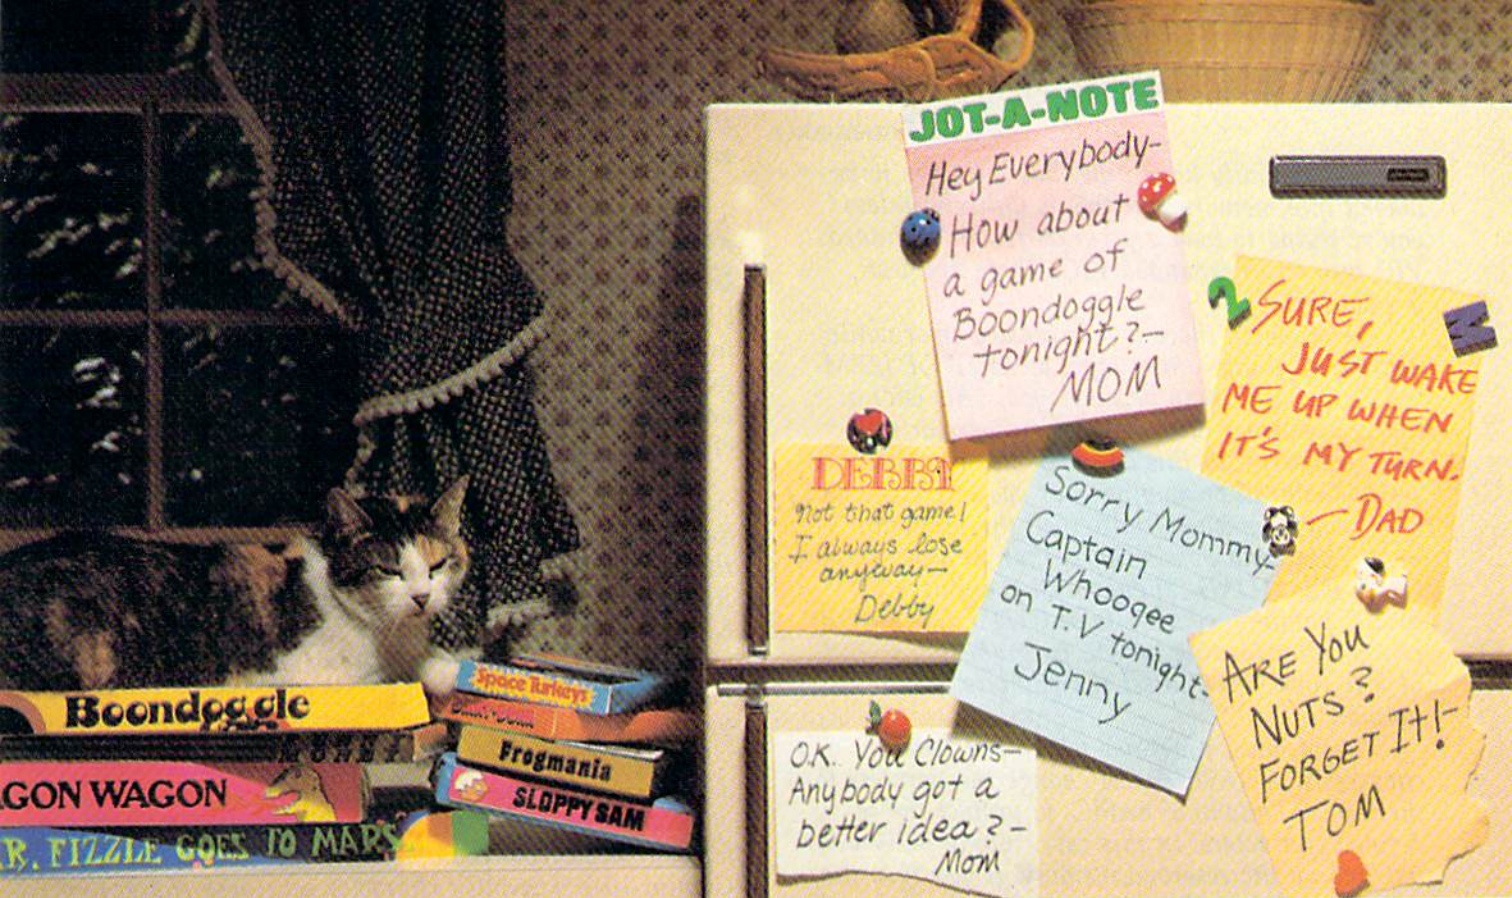 JOT-A-NOTE
Hey Everybody-
How about
a game of
Boondoggle
tonight?-
MOM
2
M
SURE,
JUST WAKE
ME UP WHEN
IT'S MY TURN.
- DAD
DEBBY
Not that game!
I always lose
anyway-
Debby
Sorry Mommy-
Captain
Whoogee
on T.V tonight-
Jenny
ARE YOU
NUTS?
FORGET It!-
TOM
O.K. You Clowns-
Anybody got a
better idea?-
Mom
Boondoggle
GON WAGON
R. FIZZLE GOES TO MARS
Space Turkeys
Frogmania
SLOPPY SAM